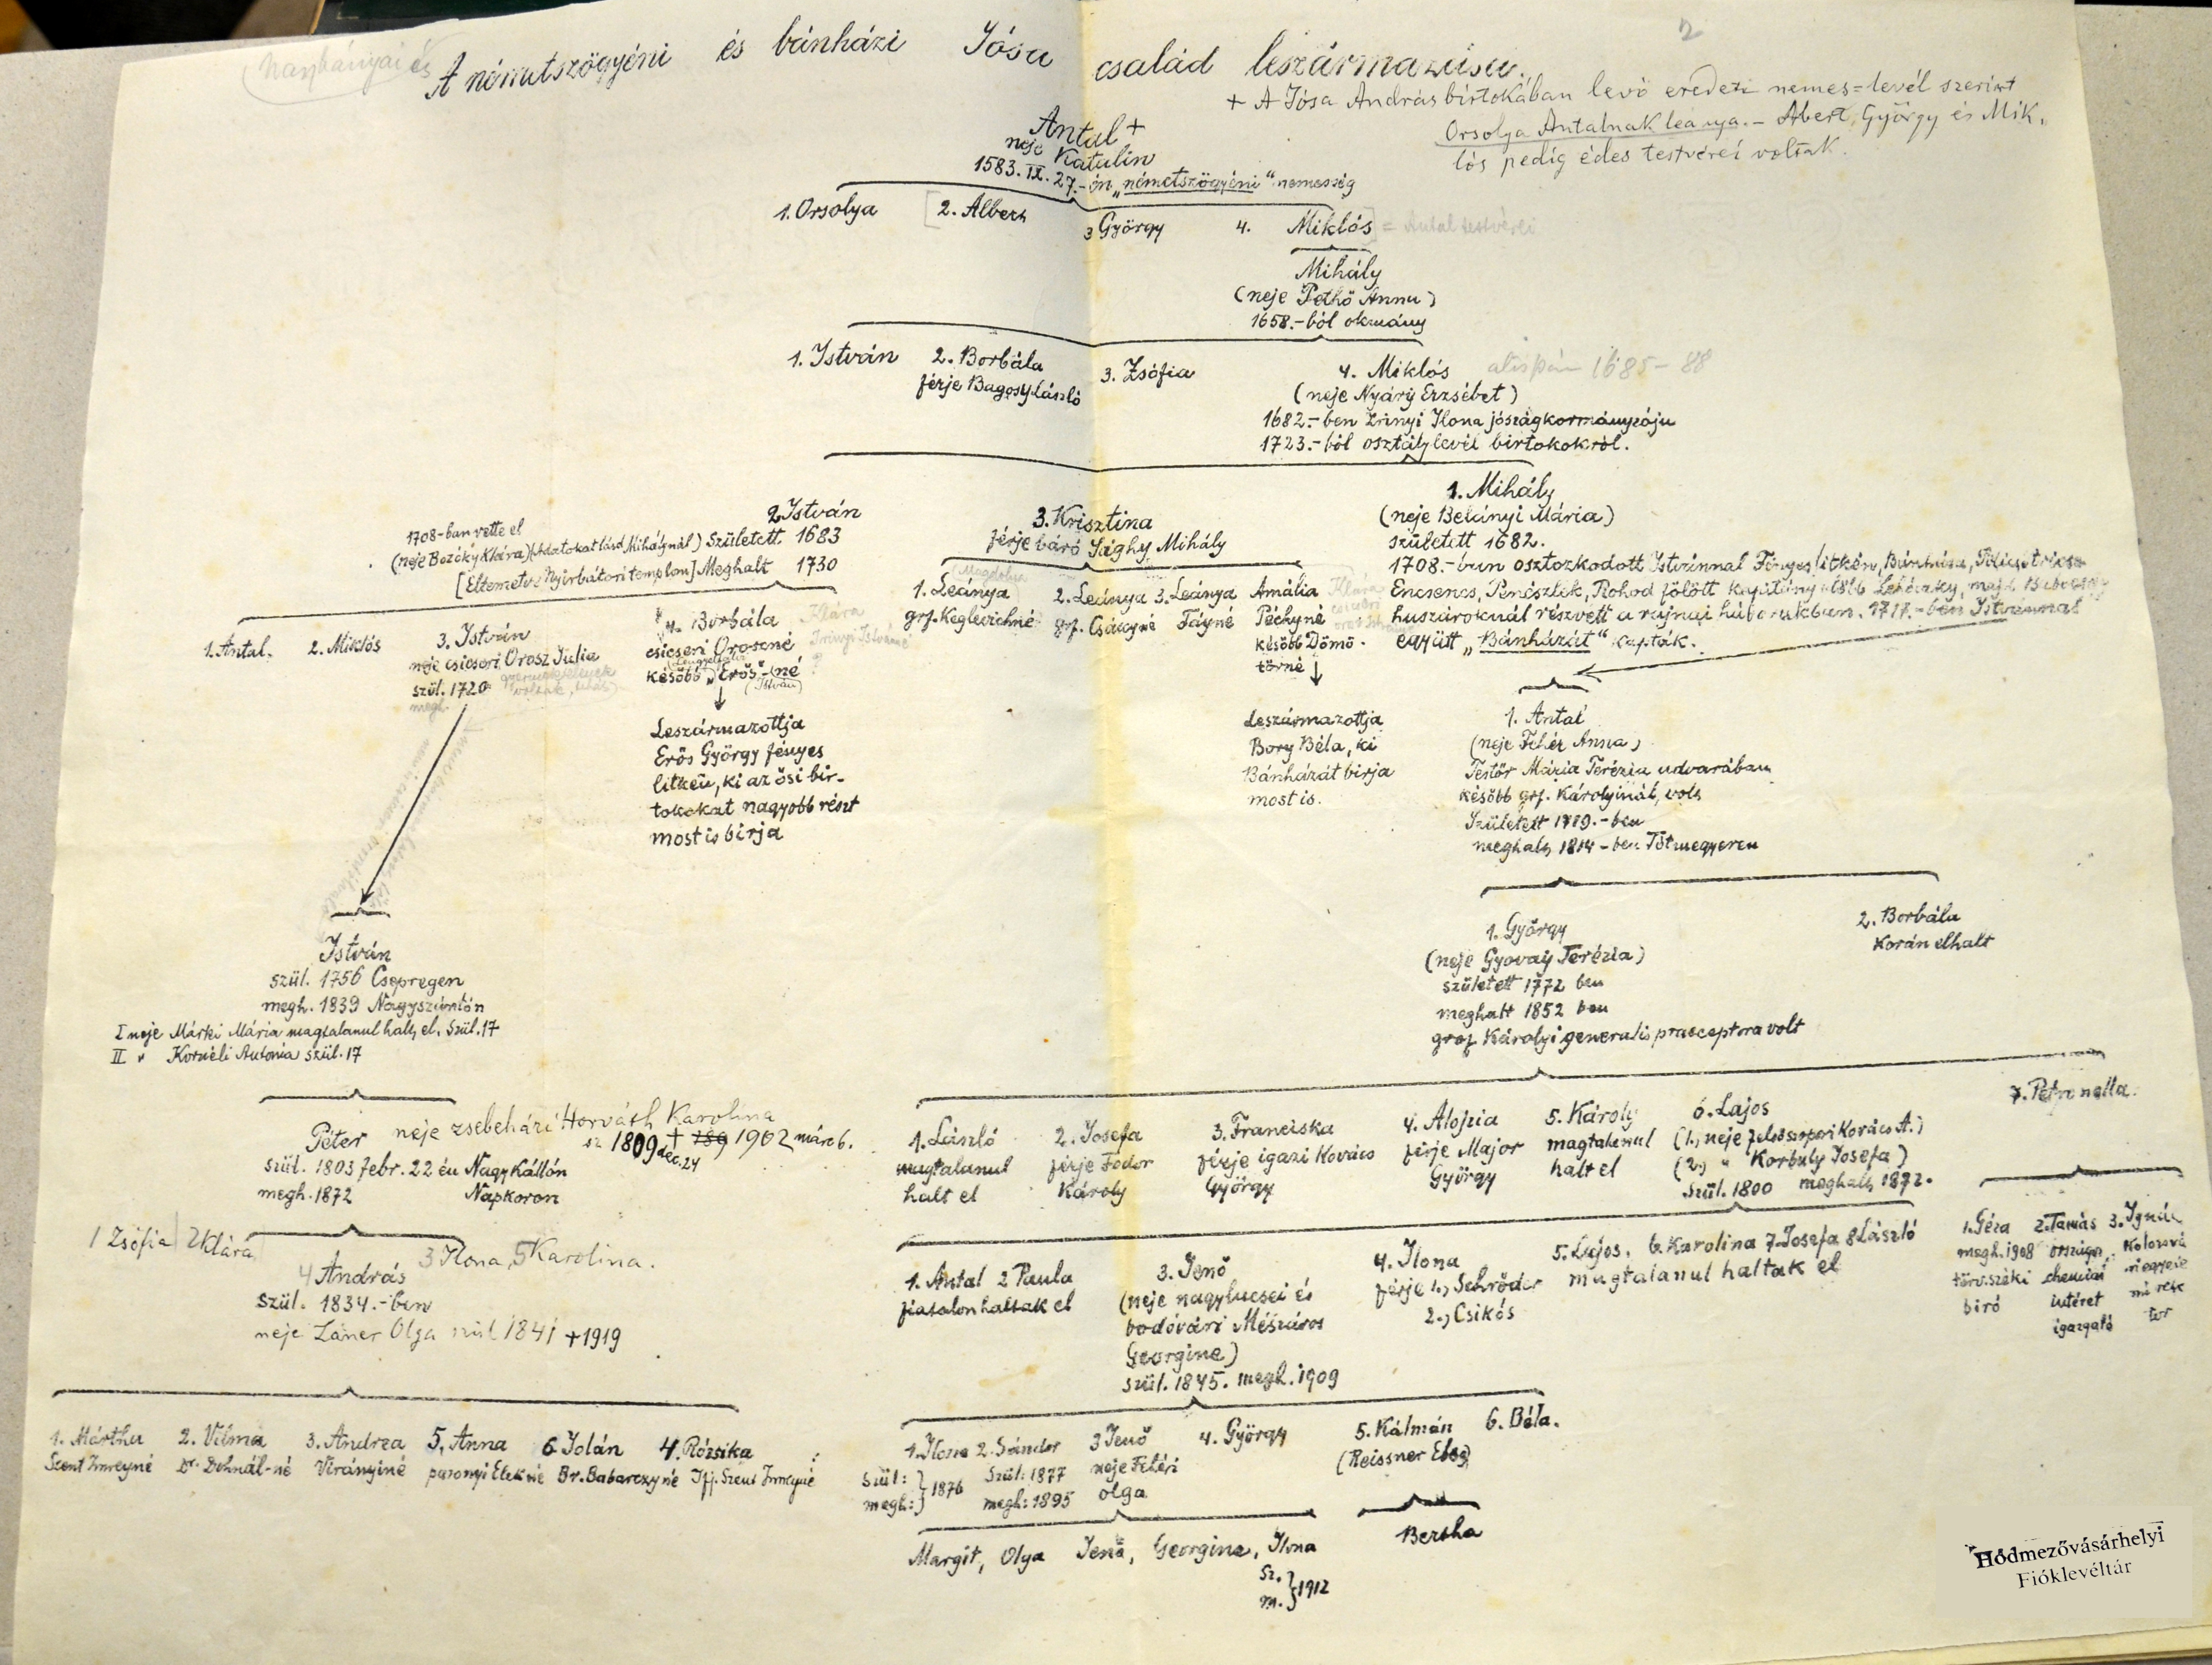 Nagybányai és
A németszögyéni és bánházi Jósa család leszármazása.
2
+ A Jósa András birtokában levő eredeti nemes=levél szerint
Orsolya Antalnak leánya. - Albert, György és Mik.
lós pedig édes testvérei voltak.
Antal +
neje Katalin
1583. IX. 27.-én „németszögyéni" nemesség
1. Orsolya [2. Albert 3 György 4. Miklós] = Antal testvérei
Mihály
(neje Pethő Anna)
1658.-ból okmány
1. István 2. Borbála 3. Zsófia 4. Miklós alispán 1685-88
férje Bagosy László
(neje Nyáry Erzsébet)
1682.-ben Zrinyi Ilona jószágkormányzója
1723.-ból osztálylevél birtokokról.
2 István
1708-ban vette el
(neje Bozóky Klára) (Adatokat lásd Mihálynál) Született 1683
[Eltemetve Nyírbátori templom] Meghalt 1730
3. Krisztina
férje báró Sághy Mihály
1. Mihály
(neje Belényi Mária)
született 1682.
1708.-ban osztozkodott Istvánnal Fényeslitkén, Bánháza,
Encsencs, Penészlek, Rohod fölött kapitány
huszároknál részvett a rajnai háborukban. 1717.-ben Istvánnal
együtt „Bánházát" kapták.
1. Antal. 2. Miklós 3. István
neje csicseri Orosz Julia
szül. 1720
megh.
4. Borbála
csicseri Oroszné
később „Erős"-né
(István)
Klára
Irinyi Istvánné
?
Leszármazottja
Erős György fényes
litkén, ki az ősi bir-
tokokat nagyobb részt
most is birja
(Magdolna
1. Leánya 2. Leánya 3. Leánya Amália
grf. Keglevichné grf. Csákyné Fáyné Péchyné
később Dömö-
törné
Klára
csicseri
Leszármazottja
Bory Béla, ki
Bánházát birja
most is.
1. Antal
(neje Fehér Anna)
Testőr Mária Terézia udvarában
később grf. Károlyinál, volt
Született 1789.-ben
meghalt 1814-ben Tótmegyeren
1. György
(neje Gyovay Terézia)
született 1772 ben
meghalt 1852 ben
gróf Károlyi generalis praeceptora volt
2. Borbála
Korán elhalt
István
szül. 1756 Csepregen
megh. 1839 Nagyszántón
I neje Márki Mária magtalanul halt el. Szül. 17
II " Kornéli Antonia szül. 17
Péter neje zsebeházi Horváth Karolina
sz 1809 dec. 24 + 189 1902 márc 6.
szül. 1803 febr. 22 én Nagy Kállón
megh. 1872 Napkoron
1 Zsófia 2 Klára 3 Ilona, 5 Karolina.
4 András
szül. 1834.-ben
neje Láner Olga szül 1841 +1919
1. Mártha 2. Vilma 3. Andrea 5. Anna 6 Jolán 4. Rózsika
Szent Imreyné Dr. Dohnál-né Virányiné pazonyi Elekné Br. Babarczyné Ifj. Szent Imreyné
1. László 2. Josefa 3. Franciska 4. Alojzia 5. Károly 6. Lajos 7. Petronella.
magtalanul férje Fodor férje igazi Kovács férje Major magtalanul (1., neje felsőszopori Kovács A.)
halt el Károly György György halt el (2., " Korbuly Josefa)
szül. 1800 meghalt 1872.
1. Antal 2 Paula
fiatalon haltak el
3. Jenő
(neje nagylucsei és
bodóvári Mészáros
Georgine)
szül. 1845. megh. 1909
4. Ilona
férje 1., Schröder
2., Csikós
5. Lajos, 6. Karolina 7. Josefa 8 László
magtalanul haltak el
1. Géza 2. Tamás 3. Ignác
megh. 1908 országos Kolozsvá
törv.széki chemiai
biró intéret
igazgató
1. Ilona 2. Sándor 3 Jenő 4. György 5. Kálmán 6. Béla.
szül: } 1876 szül: 1877 neje Fehéri (Reissner Elza)
megh: } megh: 1895 Olga
Margit, Olga Jenő, Georgina, Ilona
sz. } 1912
m. }
Bertha
Hódmezővásárhelyi
Fióklevéltár